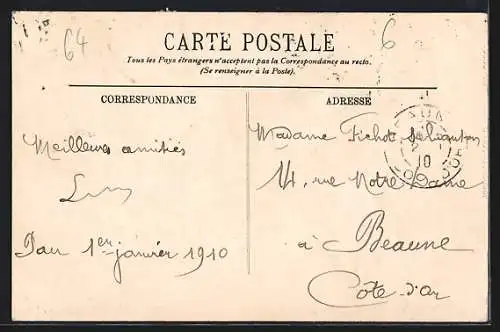 64
6
CARTE POSTALE
Tous les Pays étrangers n'acceptent pas la Correspondance au recto.
(Se renseigner à la Poste).
CORRESPONDANCE
ADRESSE
Meilleures amitiés
Pau 1er janvier 1910
Madame Fichot
14, rue Notre Dame
à
Beaune
Côte-d'Or
10